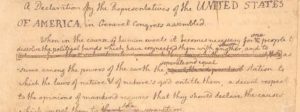 A Declaration by the Representatives of the UNITED STATES
OF AMERICA, in General Congress assembled.
When in the course of human events it becomes necessary for people to
one
dissolve the political bands which have connected them with another, and to
separate and equal
sume among the powers of the earth the station to
which the laws of nature & of nature's god entitle them, a decent respect
to the opinions of mankind requires that they should declare the causes
which impel them to the